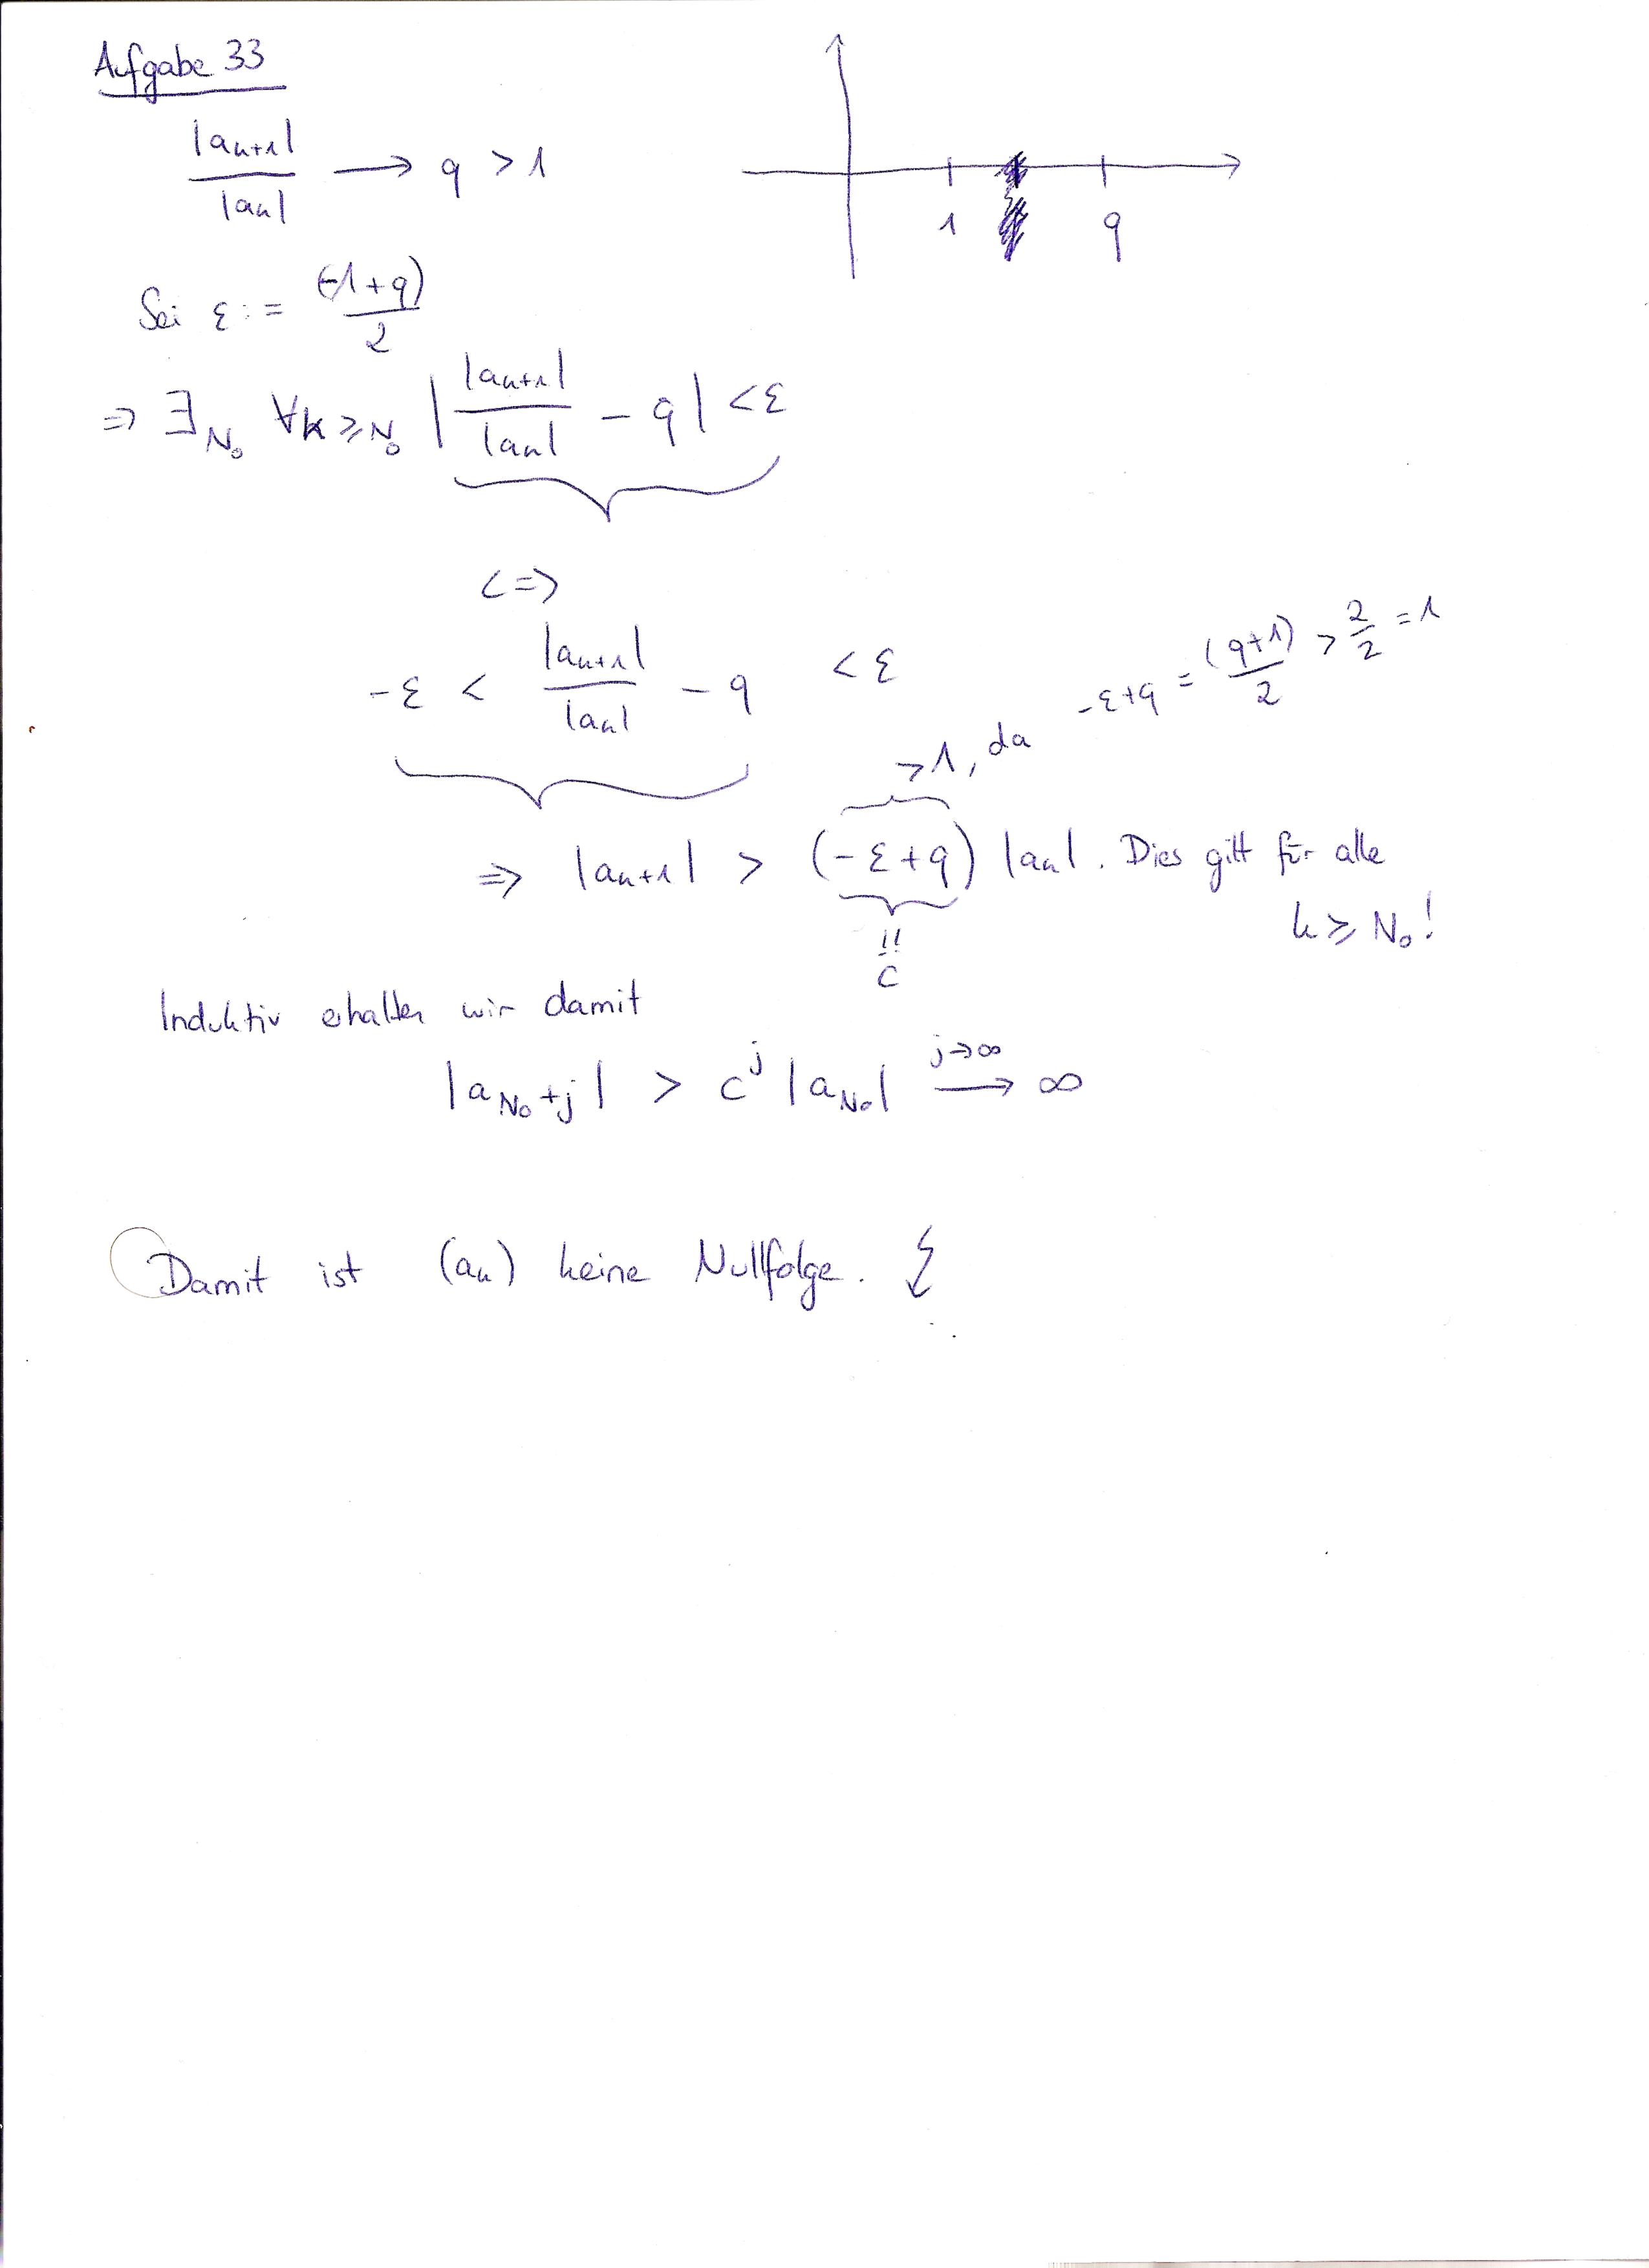 Aufgabe 33
|aₖ₊₁| / |aₖ| → q > 1
1 q
Sei ε := (-1+q) / 2
⇒ ∃_N₀ ∀k ≥ N₀ | |aₖ₊₁| / |aₖ| - q | < ε
<=>
-ε < |aₖ₊₁| / |aₖ| - q < ε
>1, da -ε+q = (q+1) / 2 > 2/2 = 1
⇒ |aₖ₊₁| > (-ε+q) |aₖ|. Dies gilt für alle
k ≥ N₀!
!!
c
Induktiv erhalten wir damit
|a_{N₀+j}| > c^j |a_{N₀}| →^{j→∞} ∞
Damit ist (aₖ) keine Nullfolge. ↯